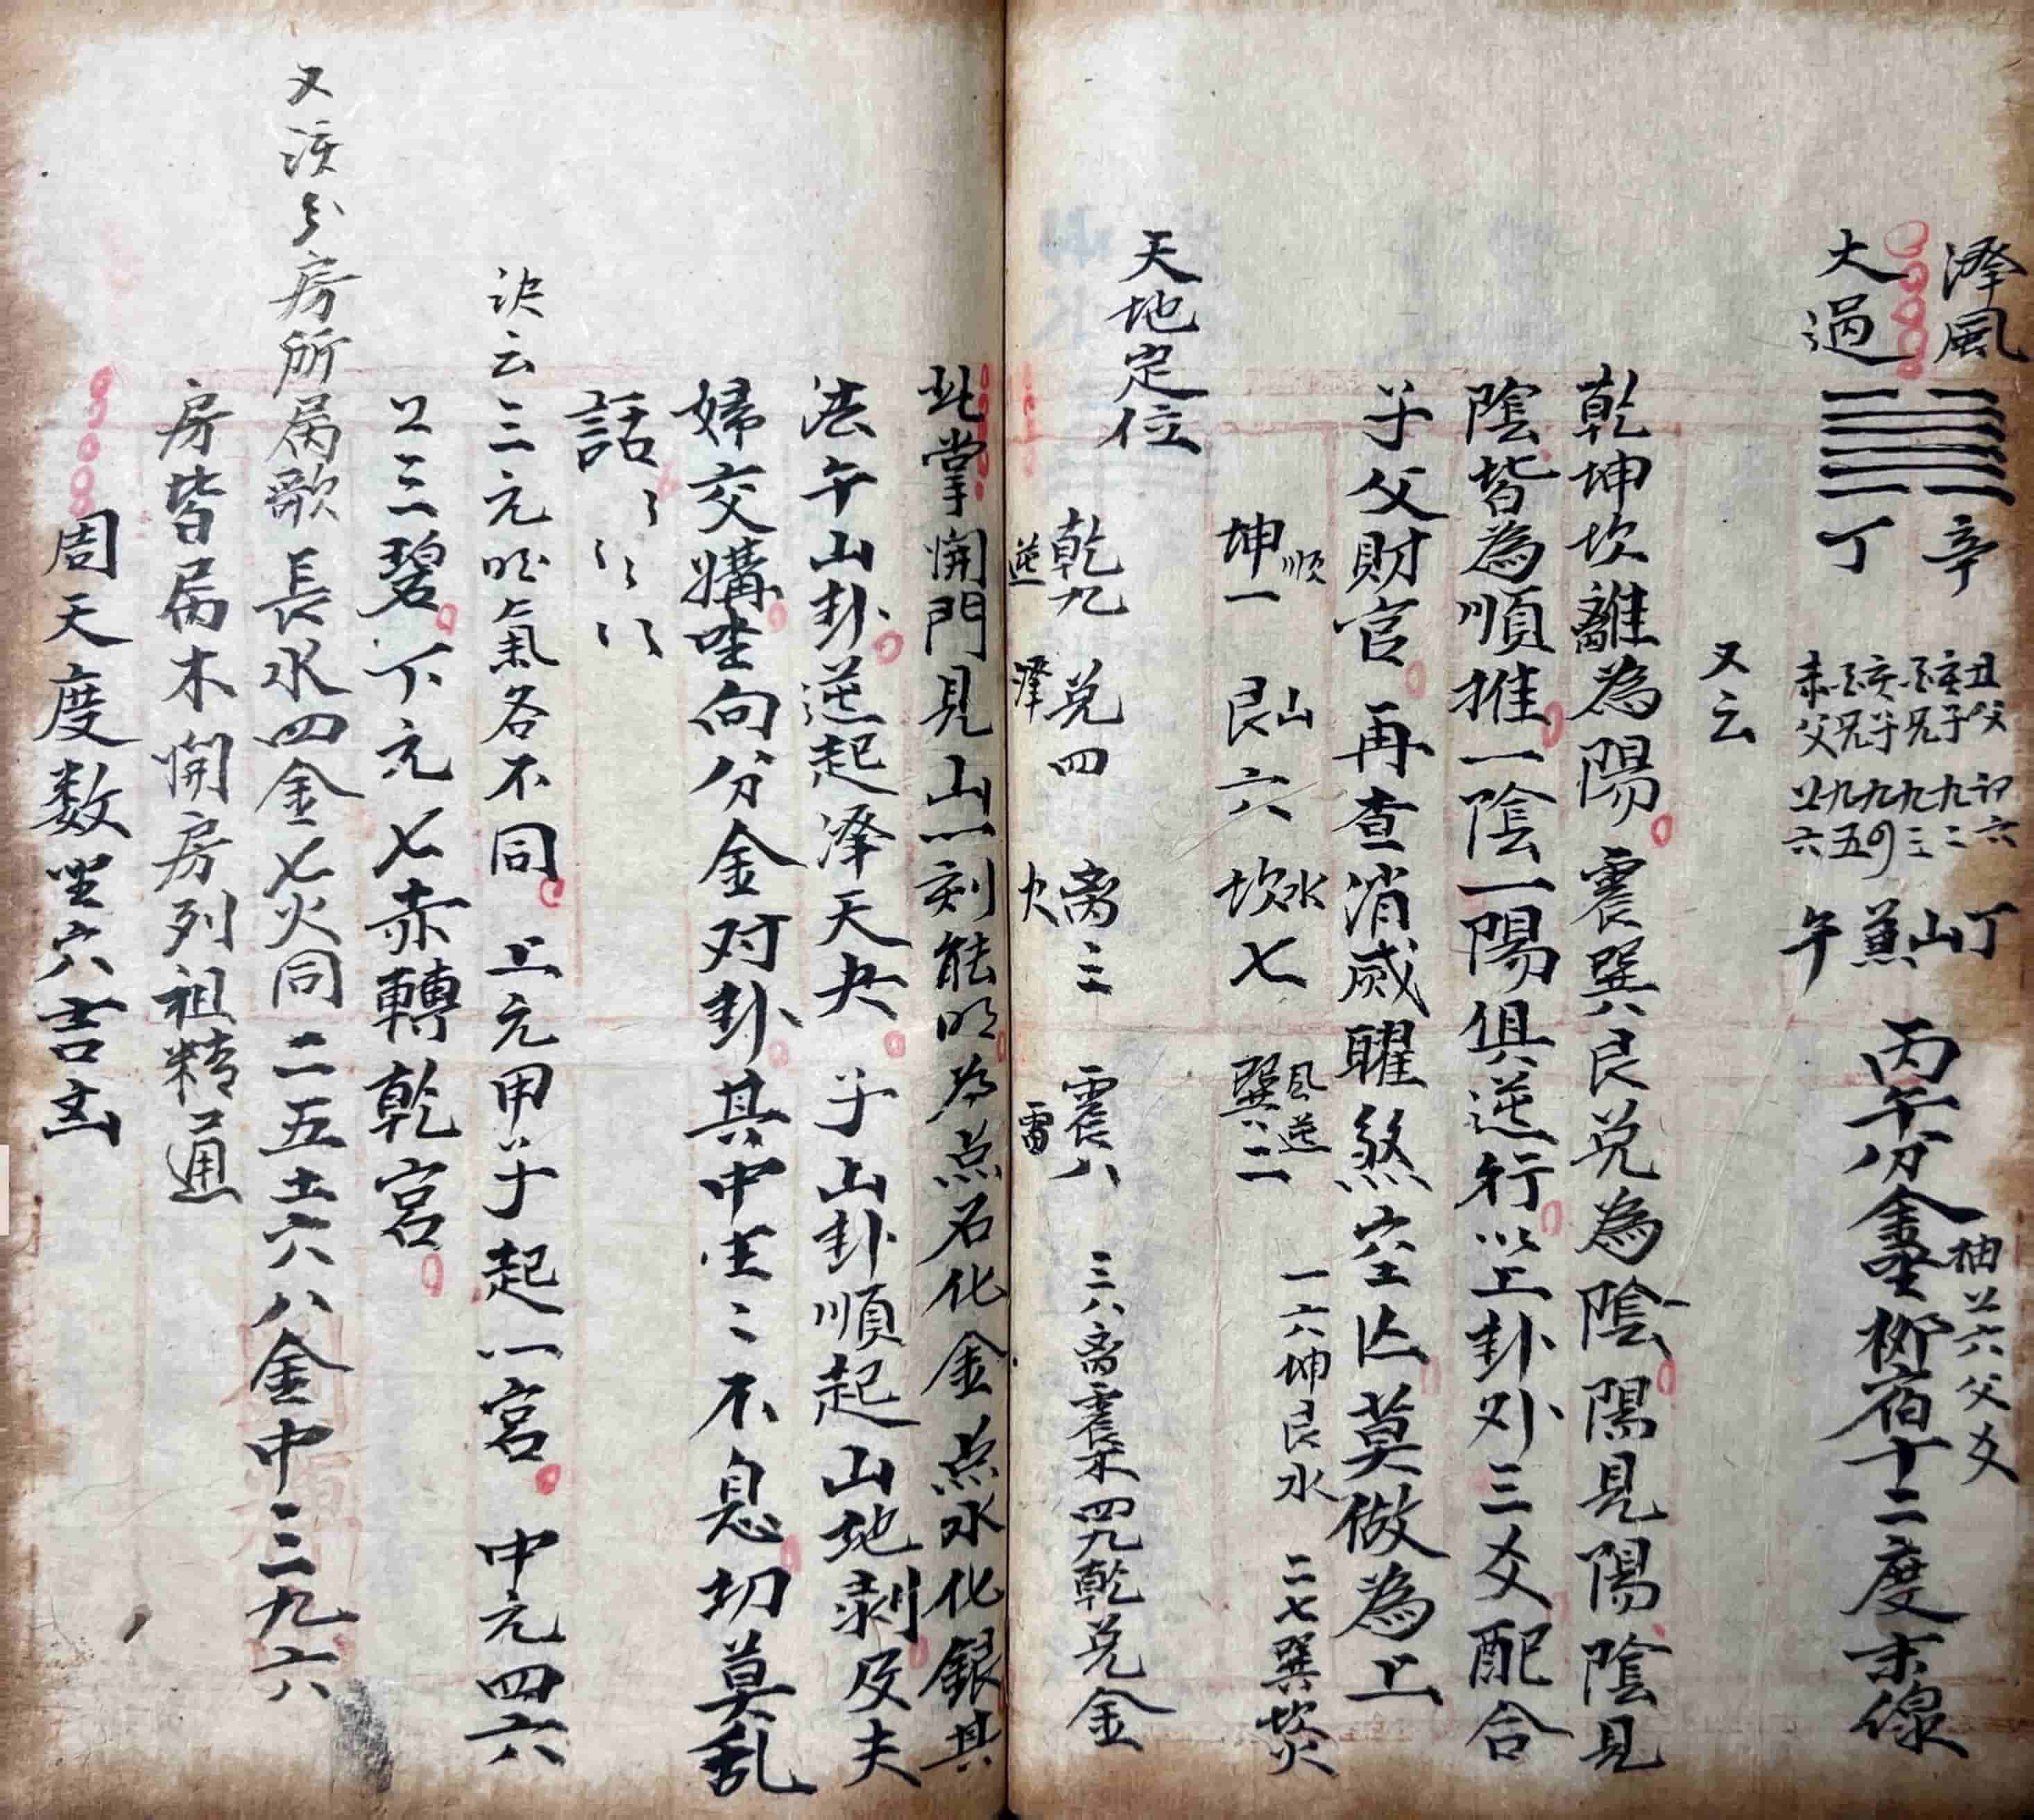 澤風
大過
辛
丁
丑父 初六
亥子 九二
酉兄 九三
亥子 九四
酉兄 九五
未父 上六
丁山兼午
丙午分金坐柳宿十二度末線
抽上六父爻
又云
乾坤坎離為陽震巽艮兑為陰陽見陽陰見
陰皆為順推一陰一陽俱逆行以上卦外三爻配合
子父財官再查消滅曜煞空亡莫做為上
坤一 艮六 坎七 巽二
順 山 水 風逆
一六坤艮水 二七巽坎火
天地定位
乾九 兑四 离三 震八 三八离震木四九乾兑金
逆 澤 火 雷
此掌開門見山一刻能明為点石化金点水化銀其
法午山卦逆起澤天夬 子山卦順起山地剥及夫
婦交媾坐向分金对卦其中生〻不息切莫乱
話〻〻〻〻〻
訣云三元旺氣各不同上元甲子起一宫中元四六
上三碧下元七赤轉乾宫
又談分房所属歌長水四金七火同二五土六八金中三九六
房皆属木開房列祖精通
周天度数坐穴吉凶